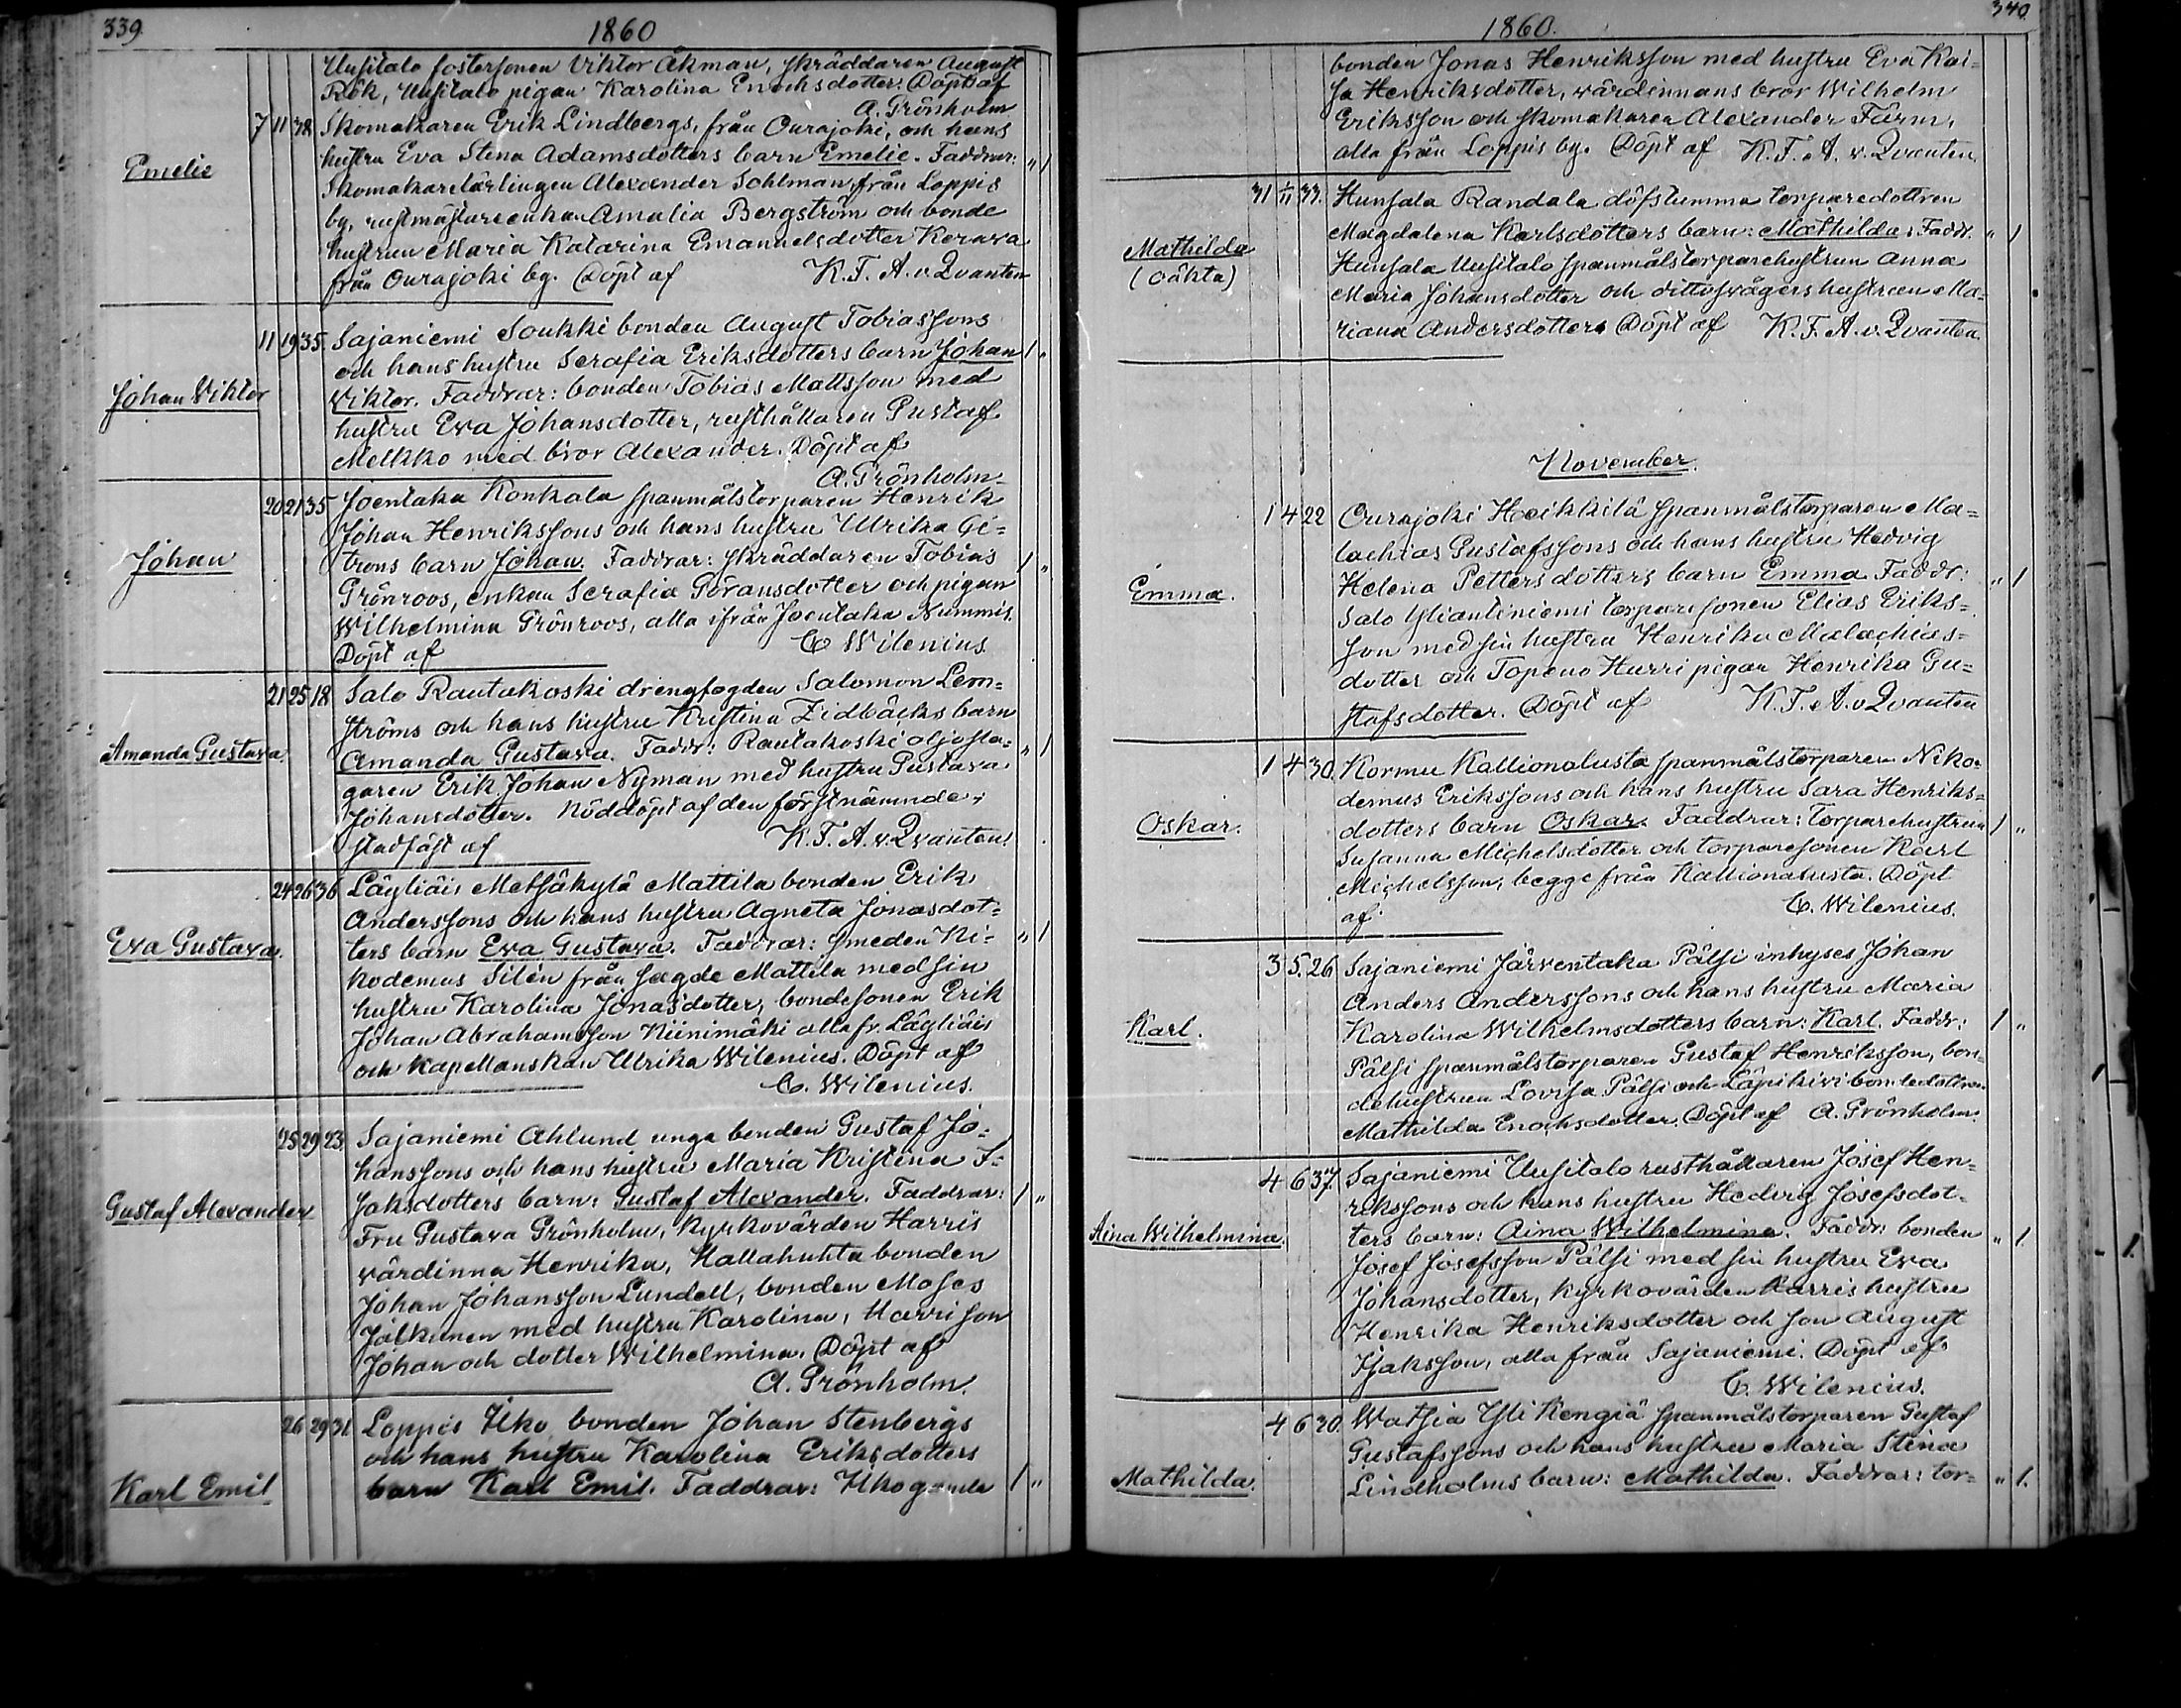 339.
1860
Uusitalo fostersonen Viktor Åkman, skräddaren August
Rök, Uusitalo pigan Karolina Enochsdotter. Döpt af
A. Grönholm
7 11 38 Skomakaren Erik Lindbergs, från Ourajoki, och hans
hustru Eva Stina Adamsdotters barn Emelie. Faddrar: " 1
Emelie
Skomakarelärlingen Alexander Sohlman, från Loppis
by, rustmästareenkan Amalia Bergström och bonde
hustrun Maria Katarina Emanuelsdotter Kerava
från Ourajoki by. Döpt af K. F. A. v. Qvanten
11 19 35. Sajaniemi Soukki bonden August Tobiassons
och hans hustru Serafia Eriksdotters barn Johan 1 "
Johan Viktor
Viktor. Faddrar: bonden Tobias Mattsson med
hustru Eva Johansdotter, rusthållaren Gustaf
Melkko med bror Alexander. Döpt af
A. Grönholm.
20 21 35 Joentaka Konkala spanmålstorparen Henrik
Johan Henrikssons och hans hustru Ulrika Ci=
Johan
trons barn Johan. Faddrar: skräddaren Tobias 1 "
Grönroos, enkan Serafia Göransdotter och pigan
Wilhelmina Grönroos, alla ifrån Joentaka Nummis.
Döpt af C Wilenius
21 25 18 Salo Rautakoski drengfogden Salomon Lem=
ströms och hans hustru Kristina Zidbäcks barn
Amanda Gustava.
Amanda Gustava. Faddr: Rautakoski oljesla= " 1
garen Erik Johan Nyman med hustru Gustava
Johansdotter. Nöddöpt af den förstnämnde;
stadfäst af K. F. A. v. Qvanten.
24 26 36 Läyliäis Metsäkylä Mattila bonden Erik
Anderssons och hans hustru Agneta Jonasdot=
Eva Gustava.
ters barn Eva Gustava. Faddrar: smeden Ni= " 1
kodemus Silén från sagde Mattila med sin
hustru Karolina Jonasdotter, bondesonen Erik
Johan Abrahamsson Niinimäki alla fr. Läyliäis
och kapellanskan Ulrika Wilenius. Döpt af
C. Wilenius.
25 29 23. Sajaniemi Ahlund unga bonden Gustaf Jo=
hanssons och hans hustru Maria Kristina I=
Gustaf Alexander
saksdotters barn: Gustaf Alexander. Faddrar: 1 "
Fru Gustava Grönholm, Kyrkovärden Harris
värdinna Henrika, Hallahuhta bonden
Johan Johansson Lundell, bonden Moses
Jälkunen med hustru Karolina, Harri son
Johan och dotter Wilhelmina. Döpt af
A. Grönholm.
26 29 31 Loppis Ilko bonden Johan Stenbergs
och hans hustru Karolina Eriksdotters
Karl Emil
barn Karl Emil. Faddrar: Ilko gamla 1 "
340.
1860.
bonden Jonas Henriksson med hustru Eva Kai=
sa Henriksdotter, värdinnans bror Wilhelm
Eriksson och skomakaren Alexander Färm,
alla från Loppis by. Döpt af K. F. A. v. Qvanten.
31 1/11 33. Hunsala Randala döfstumma torparedottren
Magdalena Karlsdotters barn: Mathilda. Faddr. " 1
Mathilda
(oäkta)
Hunsala Uusitalo spanmålstorparehustrun Anna
Maria Johansdotter och dittosvågershustrun Ma=
riana Andersdotter. Döpt af K. F. A. v. Qvanten.
November.
1 4 22 Ourajoki Heikkilä spanmålstorparen Ma=
lachias Gustafssons och hans hustru Hedvig
Emma.
Helena Pettersdotters barn Emma. Faddr: " 1
Salo Ylianteniemi torparesonen Elias Eriks=
son med sin hustru Henrika Malachias=
dotter och Topeno Hurri pigan Henrika Gu=
stafsdotter. Döpt af K. F. A. v Qvanten
1 4 30. Kormu Kallionalusta spanmålstorparen Niko=
demus Erikssons och hans hustru Sara Henriks=
Oskar.
dotters barn Oskar. Faddrar: Torparehustrun 1 "
Susanna Michelsdotter och torparesonen Karl
Michelsson, begge från Kallionalusta. Döpt
af C. Wilenius.
3 5. 26 Sajaniemi Järventaka Pälsi inhyses Johan
Anders Anderssons och hans hustru Maria
Karl.
Karolina Wilhelmsdotters barn: Karl. Faddr: 1 "
Pälsi spanmålstorparen Gustaf Henriksson, bon=
dehustrun Lovisa Pälsi och Läpikivi bondedottren
Mathilda Enochsdotter. Döpt af A. Grönholm.
4 6 37. Sajaniemi Uusitalo rusthållaren Josef Hen=
rikssons och hans hustru Hedvig Josefsdot=
Aina Wilhelmina.
ters barn: Aina Wilhelmina. Faddr: bonden " 1.
Josef Josefsson Pälsi med sin hustru Eva
Johansdotter, kyrkovärden Harris hustru
Henrika Henriksdotter och son August
Isaksson, alla från Sajaniemi. Döpt af
C. Wilenius.
4 6 30. Watsia Yli Kengiä spanmålstorparen Gustaf
Gustafssons och hans hustru Maria Stina
Mathilda.
Lindholms barn: Mathilda. Faddrar: tor= " 1.